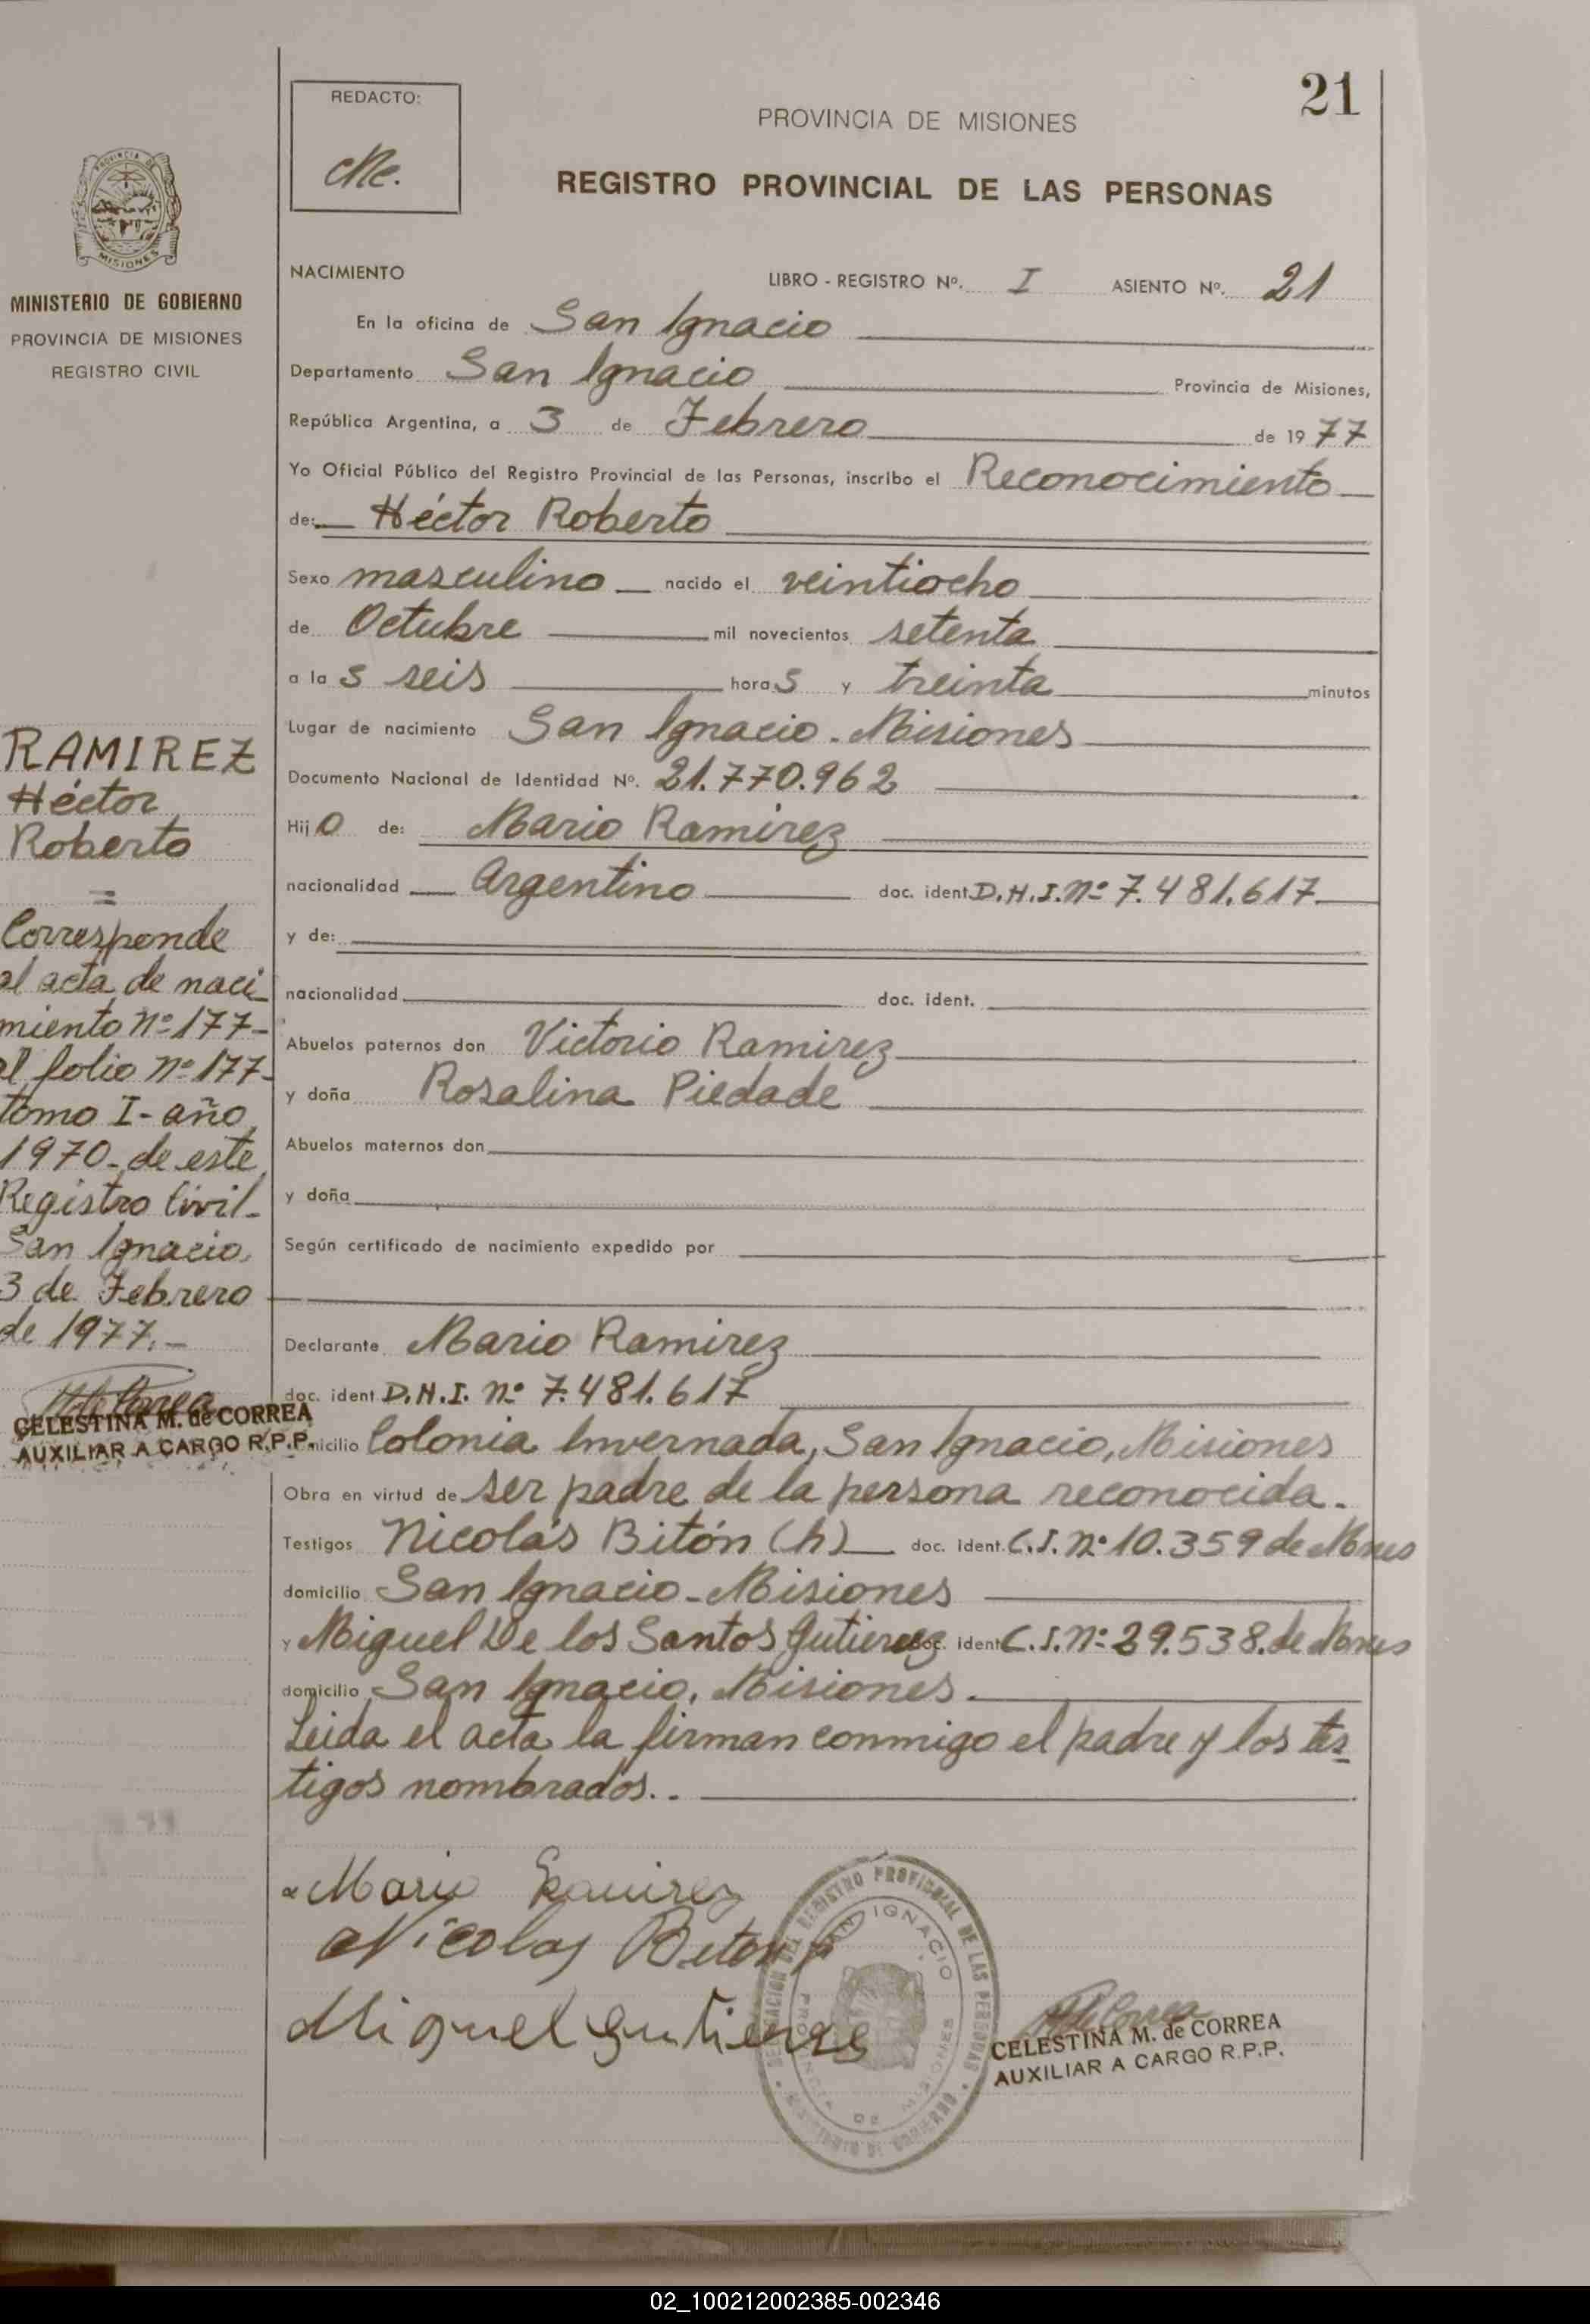 21
REDACTO:
PROVINCIA DE MISIONES
REGISTRO PROVINCIAL DE LAS PERSONAS
PROVINCIA DE
MISIONES
MINISTERIO DE GOBIERNO
PROVINCIA DE MISIONES
REGISTRO CIVIL
RAMIREZ
Héctor
Roberto
=
Corresponde
al acta de naci
miento nº 177-
al folio nº 177-
tomo I - año
1970 - de este
Registro Civil -
San Ignacio,
3 de Febrero
de 1977.-
CELESTINA M. de CORREA
AUXILIAR A CARGO R.P.P.
NACIMIENTO LIBRO - REGISTRO Nº. I ASIENTO Nº. 21
En la oficina de San Ignacio
Departamento San Ignacio Provincia de Misiones,
República Argentina, a 3 de Febrero de 1977
Yo Oficial Público del Registro Provincial de las Personas, inscribo el Reconocimiento
de: Héctor Roberto
Sexo masculino nacido el veintiocho
de Octubre mil novecientos setenta
a las seis horas y treinta minutos
Lugar de nacimiento San Ignacio - Misiones
Documento Nacional de Identidad Nº. 21.770.962
Hijo de: Mario Ramirez
nacionalidad Argentino doc. ident. D.N.I. nº 7.481.617
y de:
nacionalidad doc. ident.
Abuelos paternos don Victorio Ramirez
y doña Rosalina Piedade
Abuelos maternos don
y doña
Según certificado de nacimiento expedido por
Declarante Mario Ramirez
doc. ident. D.N.I. nº 7.481.617
micilio Colonia Invernada, San Ignacio, Misiones
Obra en virtud de ser padre de la persona reconocida.
Testigos Nicolás Bitón (h) doc. ident. C.I. nº 10.359 de Mnes
domicilio San Ignacio - Misiones
y Miguel De los Santos Gutierrez doc. ident C.I. nº 29.538. de Mnes
domicilio San Ignacio, Misiones.
Leida el acta la firman conmigo el padre y los tes
tigos nombrados..
Mario Ramirez
Nicolas Biton
Miguel Gutierrez
DELEGACION DEL REGISTRO PROVINCIAL DE LAS PERSONAS
SAN IGNACIO
PROVINCIA DE MISIONES
CELESTINA M. de CORREA
AUXILIAR A CARGO R.P.P.
02_100212002385-002346